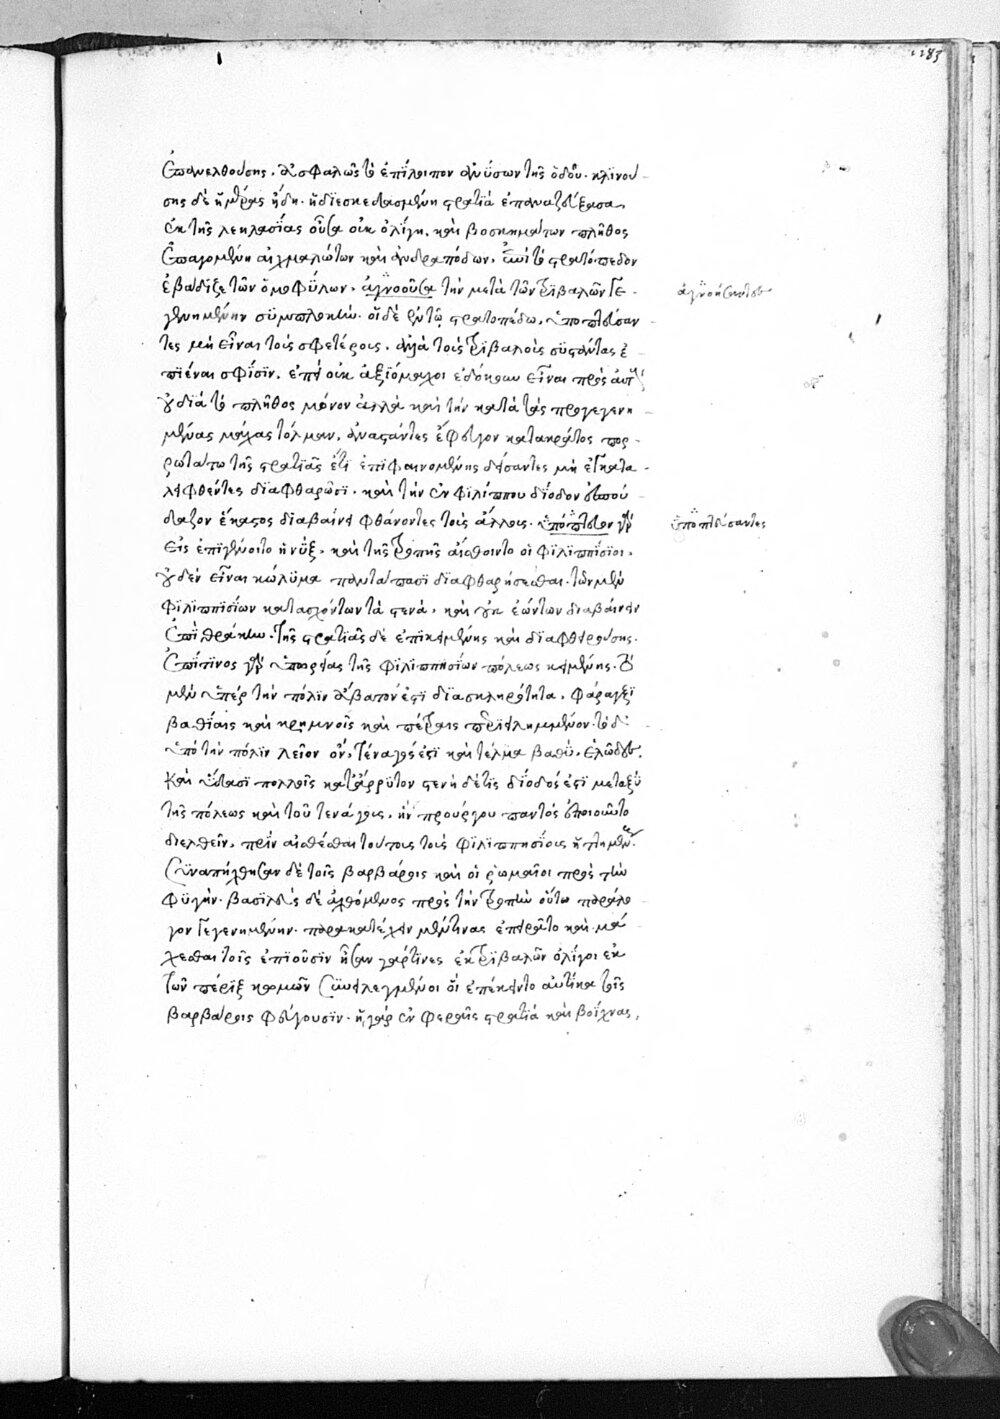 283
ἐπανελθούσης, ἀσφαλῶς τὸ ἐπίλοιπον ἀνύσων τῆς ὁδοῦ. κλινού-
σης δὲ ἡμέρας ἤδη. ἡ διεσκεδασμένη στρατιὰ ἐπαναζεύξασα,
ἐκ τῆς λεηλασίας οὖσα οὐκ ὀλίγη, καὶ βοσκημάτων πλῆθος
ἐπαγομένη αἰχμαλώτων καὶ ἀνδραπόδων, ἐπὶ τὸ στρατόπεδον
ἐβάδιζε τῶν ὁμοφύλων, ἀγνοοῦσα τὴν μετὰ τῶν τριβαλῶν γε-
ἀγνοήσαντες
γενημένην συμπλοκήν. οἱ δὲ ἐν τῷ στρατοπέδῳ, ὑποπτεύσαν
τες μὴ εἶναι τοῖς σφετέροις, ἀλλὰ τοῖς τριβαλοῖς συστάντας ἐ-
πιέναι σφίσιν, ἐπεὶ οὐκ ἀξιόμαχοι ἐδόκουν εἶναι πρὸς αὐτοὺς
οὐ διὰ τὸ πλῆθος μόνον ἀλλὰ καὶ τὴν κατὰ τὰς προγεγενη-
μένας μάχας τόλμαν, ἀναστάντες ἔφευγον κατακράτος πορ-
ρωτάτω τῆς στρατιᾶς ἔτι ἐπιφαινομένης δείσαντες μὴ ἐγκατα-
λειφθέντες διαφθαρῶσι. καὶ τὴν ἐν φιλίππου δίοδον ἐσπού-
δαζον ἕκαστος διαβαίνειν φθάνοντες τοῖς ἄλλοις. ὑπόπτευον γὰρ
ὑποπτεύσαντες
εἰς ἐπιγένοιτο ἡ νὺξ, καὶ τῆς τροπῆς αἴσθοιντο οἱ φιλιππίσιοι,
οὐδὲν εἶναι κώλυμα πανταπασι διαφθαρήσεσθαι. τῶν μὲν
φιλιππισίων κατασχόντων τὰ στενὰ, καὶ οὐκ ἐώντων διαβαίνειν
ἐπὶ θράκην. τῆς στρατιᾶς δὲ ἐπικειμένης καὶ διαφθειρούσης.
ἐπί τινος γὰρ ὑπωρείας τῆς φιλιππησίων πόλεως κειμένης. τὸ
μὲν ὑπὲρ τὴν πόλιν ἄβατόν ἐστι διὰ σκληρότητα, φάραγξι
βαθείαις καὶ κρημνοῖς καὶ πέτραις περιειλημμένον. τὸ δὲ
ὑπὸ τὴν πόλιν λεῖον ὂν, τέναγός ἐστι καὶ τέλμα βαθὺ, ἑλῶδες,
καὶ ὕδασι πολλοῖς κατάρρυτον στενὴ δέ τις δίοδός ἐστι μεταξὺ
τῆς πόλεως καὶ τοῦ τενάγους, ἣν προὔργου παντὸς ἐποιοῦντο
διελθεῖν, πρὶν αἰσθέσθαι τούτους τοὺς φιλιππησίους ἡττημένους.
συναπήχθησαν δὲ τοῖς βαρβάροις καὶ οἱ ῥωμαῖοι πρὸς τὴν
φυγὴν. βασιλεὺς δὲ ἀχθόμενος πρὸς τὴν τροπὴν οὕτω παράλο-
γον γεγενημένην. παρακατέχειν μέντινας ἐπειρᾶτο καὶ μά-
χεσθαι τοῖς ἐπιοῦσιν ἦσαν γάρ τινες ἐκ τριβαλῶν ὀλίγοι ἐκ
τῶν πέριξ κωμῶν συνειλεγμένοι οἳ ἐπέκειντο αὐτίκα τοῖς
βαρβάροις φεύγουσιν. ἡ γὰρ ἐν φεραῖς στρατιὰ καὶ βοΐχνας,